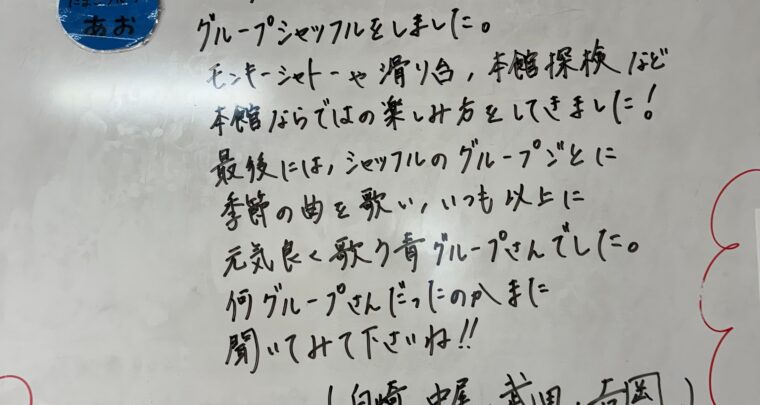 あお
グループシャッフルをしました。
モンキーシャトーや滑り台，本館探検など
本館ならではの楽しみ方をしてきました！
最後には，シャッフルのグループごとに
季節の曲を歌い，いつも以上に
元気良く歌う青グループさんでした。
何グループさんだったのかまた
聞いてみて下さいね!!